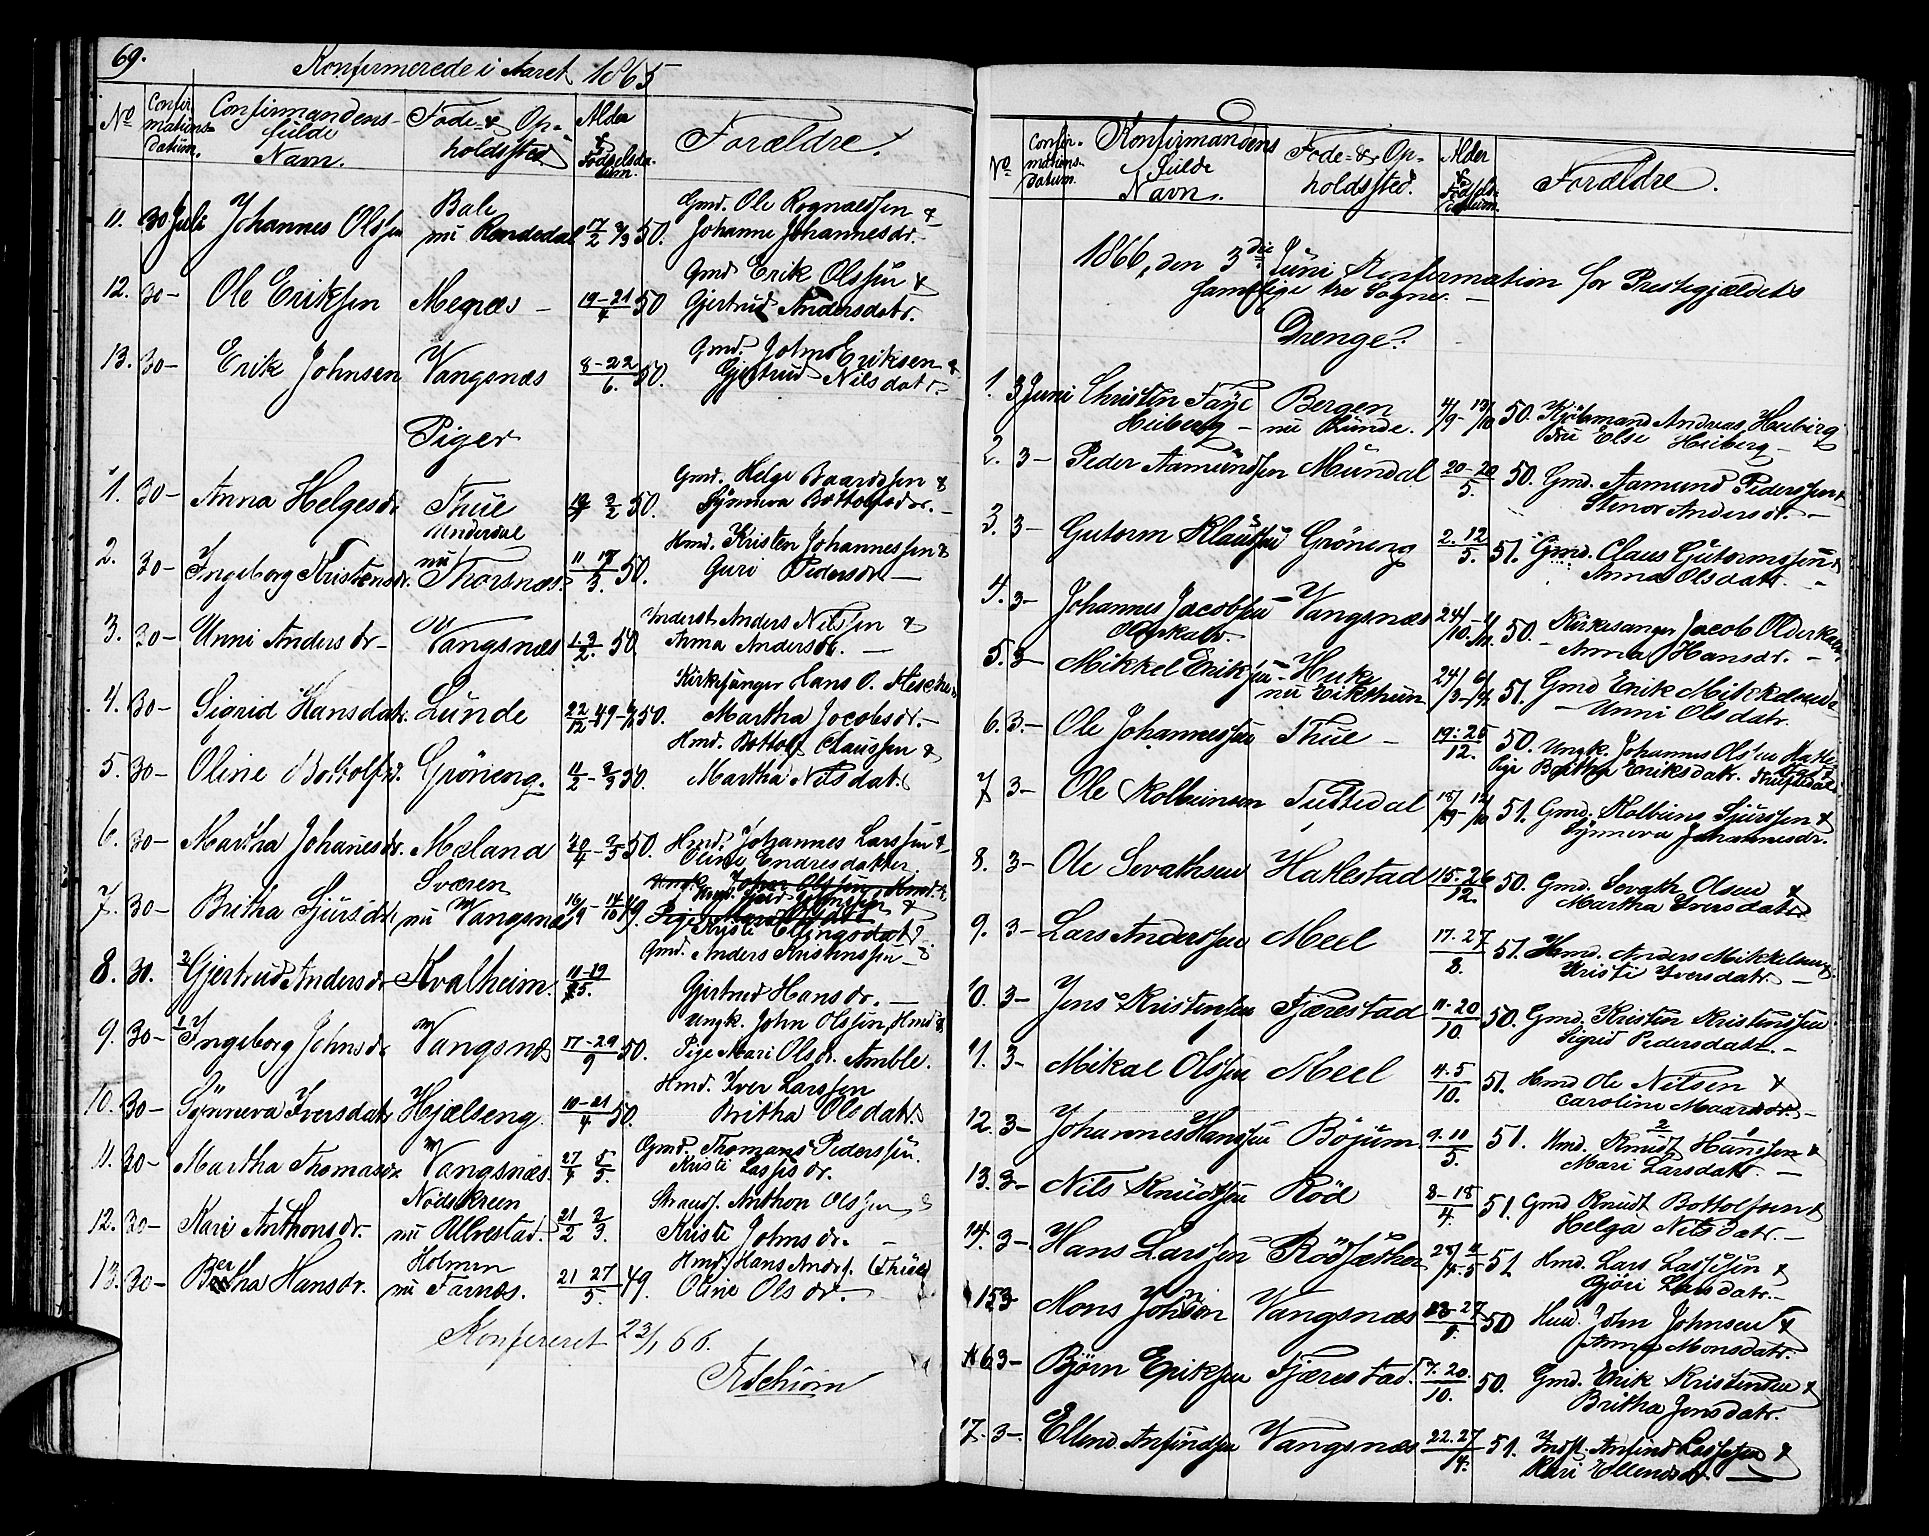 69.
Konfirmerede i Aaret 1865
No Confirmations-datum. Confirmandens fulde Navn. Føde- & Opholdssted Alder & Fødselsdatum. Forældre.
11. 30 Juli Johannes Olsen Bale nu Rendedal 17/2 3/3 50. Gmd. Ole Rognaldsen & Johanne Johannesdr.
12. 30- Ole Eriksen Menæs - 19-21/4 50 Gmd Erik Olsen & Gjertrud Andersdatr.
13. 30- Erik Johnsen Vangsnæs 8-22/6. 50. Gmd. John Eriksen & Gjertrud Nilsdatr.
Piger
1. 30- Anna Helgesdr. Thue 2/2 50. Gmd. Helge Baardsen & Synneva Bottolfsdr.
2. 30- Ingeborg Kristensdr. Underdal nu Thorsnæs. 11 17/3. 50. Hmd. Kristen Johannessen & Guri Pedersdr. -
3. 30- Unni Andersdr- Vangsnæs 1. 3/2. 50 Anders Nilssen & Anna Andersdr. -
4. 30- Sigrid Hansdatr. Lunde 22/12 49- 50. Kirkesanger Hans O. Martha Jacobsdr.-
5. 30- Oline Bottolfsd. Grøneng. 11/2 - 3/3 50. Hmd. Bottolf Claussen & Martha Nilsdatr.
6. 30- Martha Johanesdr. Mæland 20/4 - 3/5 50. Hmd. Johannes Larssen & Oline Endresdatter
7. 30- Britha Sjursdr. Sværen nu Vangsnæs 16/9 - 14/10 49. Kristi Ellingsdatr.
8. 30. 2 Gjertrud Andersdr Kvalheim. 11-19/5. Gmd. Anders Kristenssen & Gjertrud Hansdr. -
9. 30- 1 Ingeborg Johnsdr Vangsnæs 17-29/9 50. Ungk. John Olssen, Hmd & Pige Mari Olsdr. Amble.
10. 30- Synneva Iversdatr Hjælseng. 10-21/4 50. Hmd. Iver Larssen Britha Olsdatr.
11. 30- Martha Thomasdr. Vangsnæs. 27/4 5/5. Gmd. Thomas Pederssen. Kristi Lassesdr.
12. 30- Kari Anthonsdr. Nødskreen nu Alrestad. 21/2 2/3. Strands. Anthon Olssen & Kristi Johnsdr. -
13. 30- Bertha Hansdr. Holmen nu Farnæs. 21 27/5. 49. Hmd. Hans Anders. (Thue) Oline Olsdr.
Konfereret 23/1 66.
No Confirmations-datum. Konfirmandens fulde Navn. Føde- & Opholdssted. Alder & Fødselsdatum. Forældre.
1866, den 3die Juni Konfirmation for Prestegjældets samtlige tre Sogne. -
Drenge.
1. 3 Juni Christen Faye Heiberg - Bergen nu Lunde. 4/9 - 13/10 50. Kjøbmand Andreas Heiberg & Fru Else Heiberg -
2. 3- Peder Aamundsen Mundal 20-20/5. 50. Gmd. Aamund Pederssen & Stenor Andersdr. -
3. 3- Gutorm Klaussen Grøneng 2. 12/5. 51. Gmd. Claus Gutormssen & Anna Olsdatr. -
4. 3- Johannes Jacobsen Olderkalv. - Vangsnæs 24/10. 50. Kirkesanger Jacob Olderkalv & Anna Hansdr. -
5. 3- Mikkel Eriksen - Huke nu Eiksthun 24/3 - 6/4. 51. Gmd Erik Mikkelsen & Unni Olsdatr.
6. 3- Ole Johannessen Thue - 19. 26/12. 50. Ungk. Johannes Olsen & Pige Britha Eriksdatr.
7 3- Ole Kolbeinsen Tuftedal 18/9 - 12/10 51. Gmd. Kolbeins Sjurssen & Synneva Johannesdr.
8. 3- Ole Sevathsen Haklestad 15. 26/12. 50. Gmd. Sevath Olsen & Martha Iversdatr.
9. 3- Lars Anderssen Meel 17. 27/8. 51. Hmd. Anders Mikkelsen & Kristi Iversdatr. -
10. 3- Jens Kristensen Fjærestad 11-20/10. 50. Gmd. Kristen Kristenssen Sigrid Pedersdatr. -
11. 3- Mikal Olssen Meel 4. 5/10. 51. Hmd Ole Nilsen & Caroline Maardr. -
12. 3- Johannes Hanssen Bøjum. 9. 11/5. 51. Hmd. Knudt Hanssen & Mari Larsdatr. -
13. 3- Nils Knudtsen Rød 8-18/4. 51. Gmd Knudt Bottolfsen & Helga Nilsdatr. -
14. 3- Hans Larssen Rødsæther 51. Hmd. Lars Lassesen & Gjøri Larsdatr. -
15 3 Mons Johnson Vangsnæs 50 Hmd. John Johnsen & Anna Monsdatr.
16 3- Bjørn Eriksen Fjærestad. 7. 20./10. 50. Gmd. Erik Kristensen & Britha Jensdatr.
17. 3-. Ellend Anfindsen Vangsnæs 22. 27/4. 51. Indst. Anfind Lassesen & Kari Ellendsdr. -